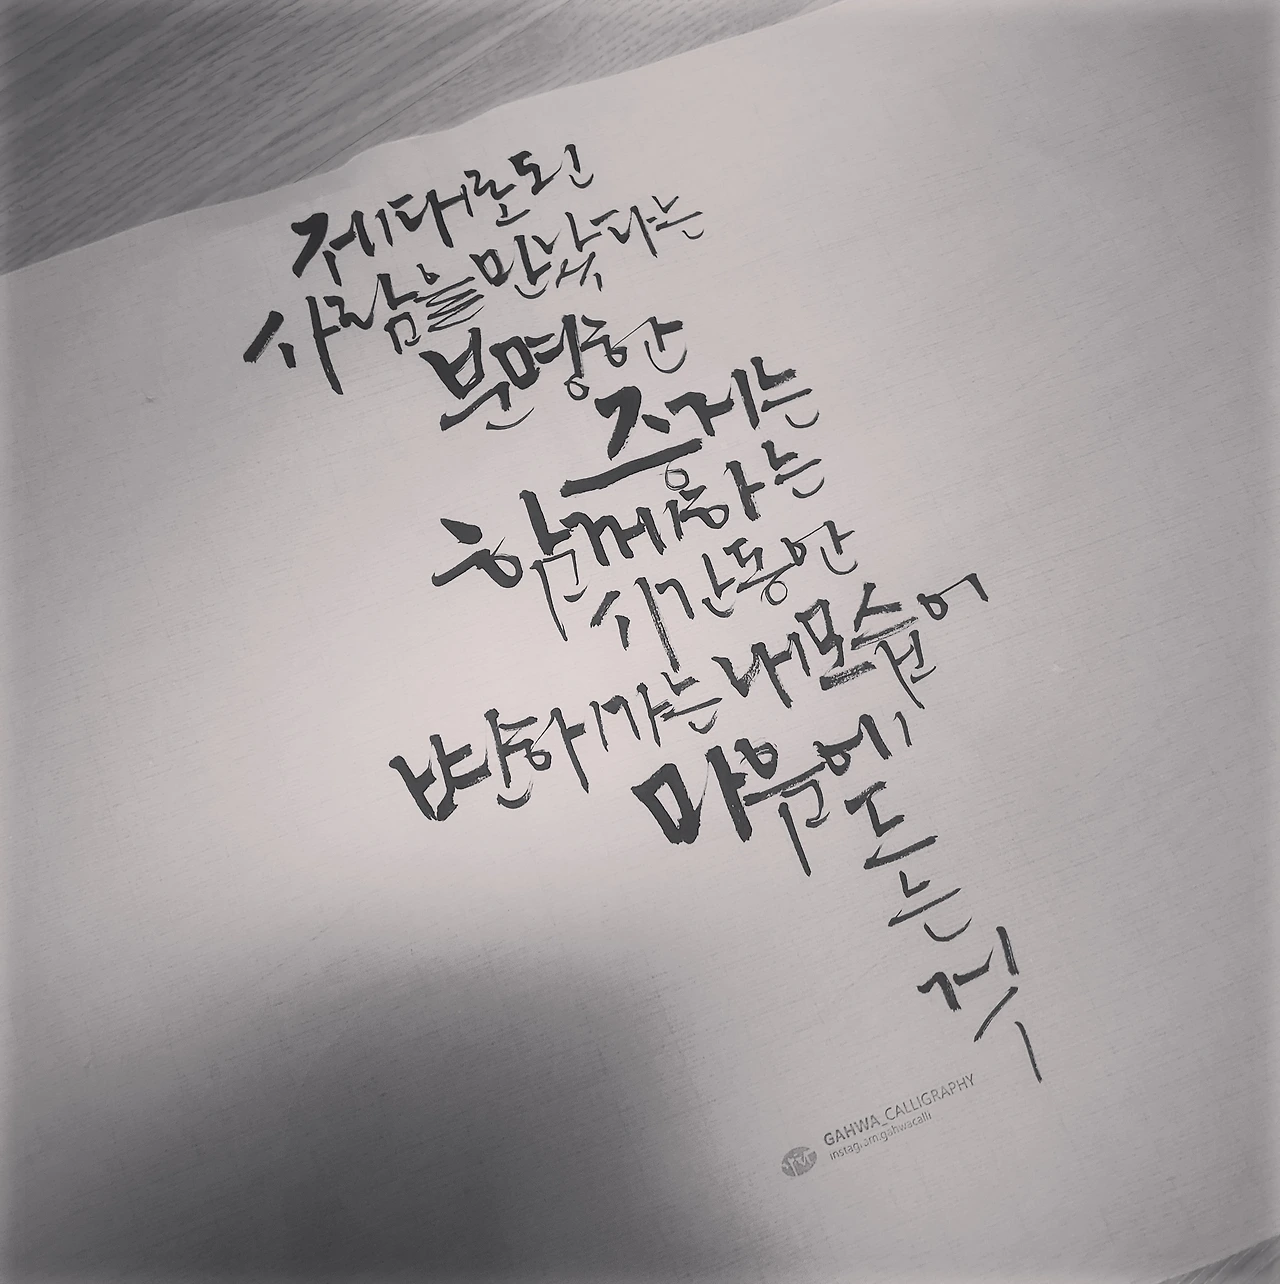 제대로 된
사람을 만났다는
분명한
증거는
함께하는
시간동안
변해가는 내 모습이
마음에
드는
것
GAHWA_CALLIGRAPHY
instagram:gahwacalli